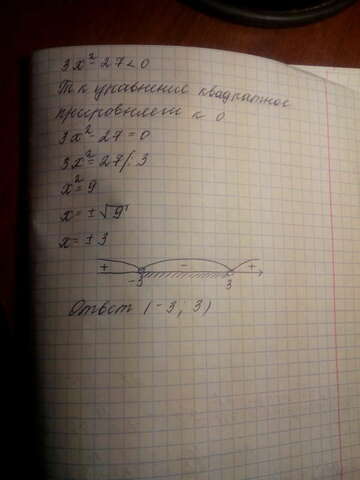 3x² - 27 < 0
Т к уравнение квадратное
прировняем к 0
3x² - 27 = 0
3x² = 27 / : 3
x² = 9
x = ± √9
x = ± 3
+ - +
-3 3
Ответ (-3; 3)